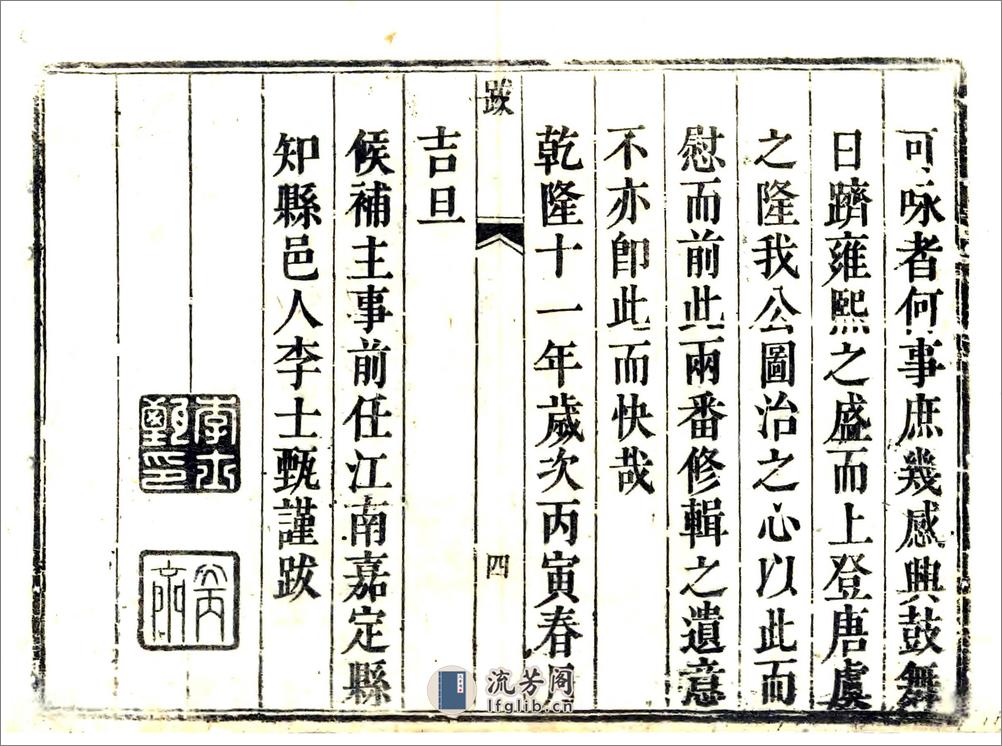 可咏者何事庶幾感興鼓舞
日躋雍熙之盛而上登唐虞
之隆我公圖治之心以此而
慰而前此兩番修輯之遺意
不亦卽此而快哉
乾隆十一年歲次丙寅春月
跋
四
吉旦
候補主事前任江南嘉定縣
知縣邑人李士甄謹跋
李士甄印
流芳阁
lfglib.cn